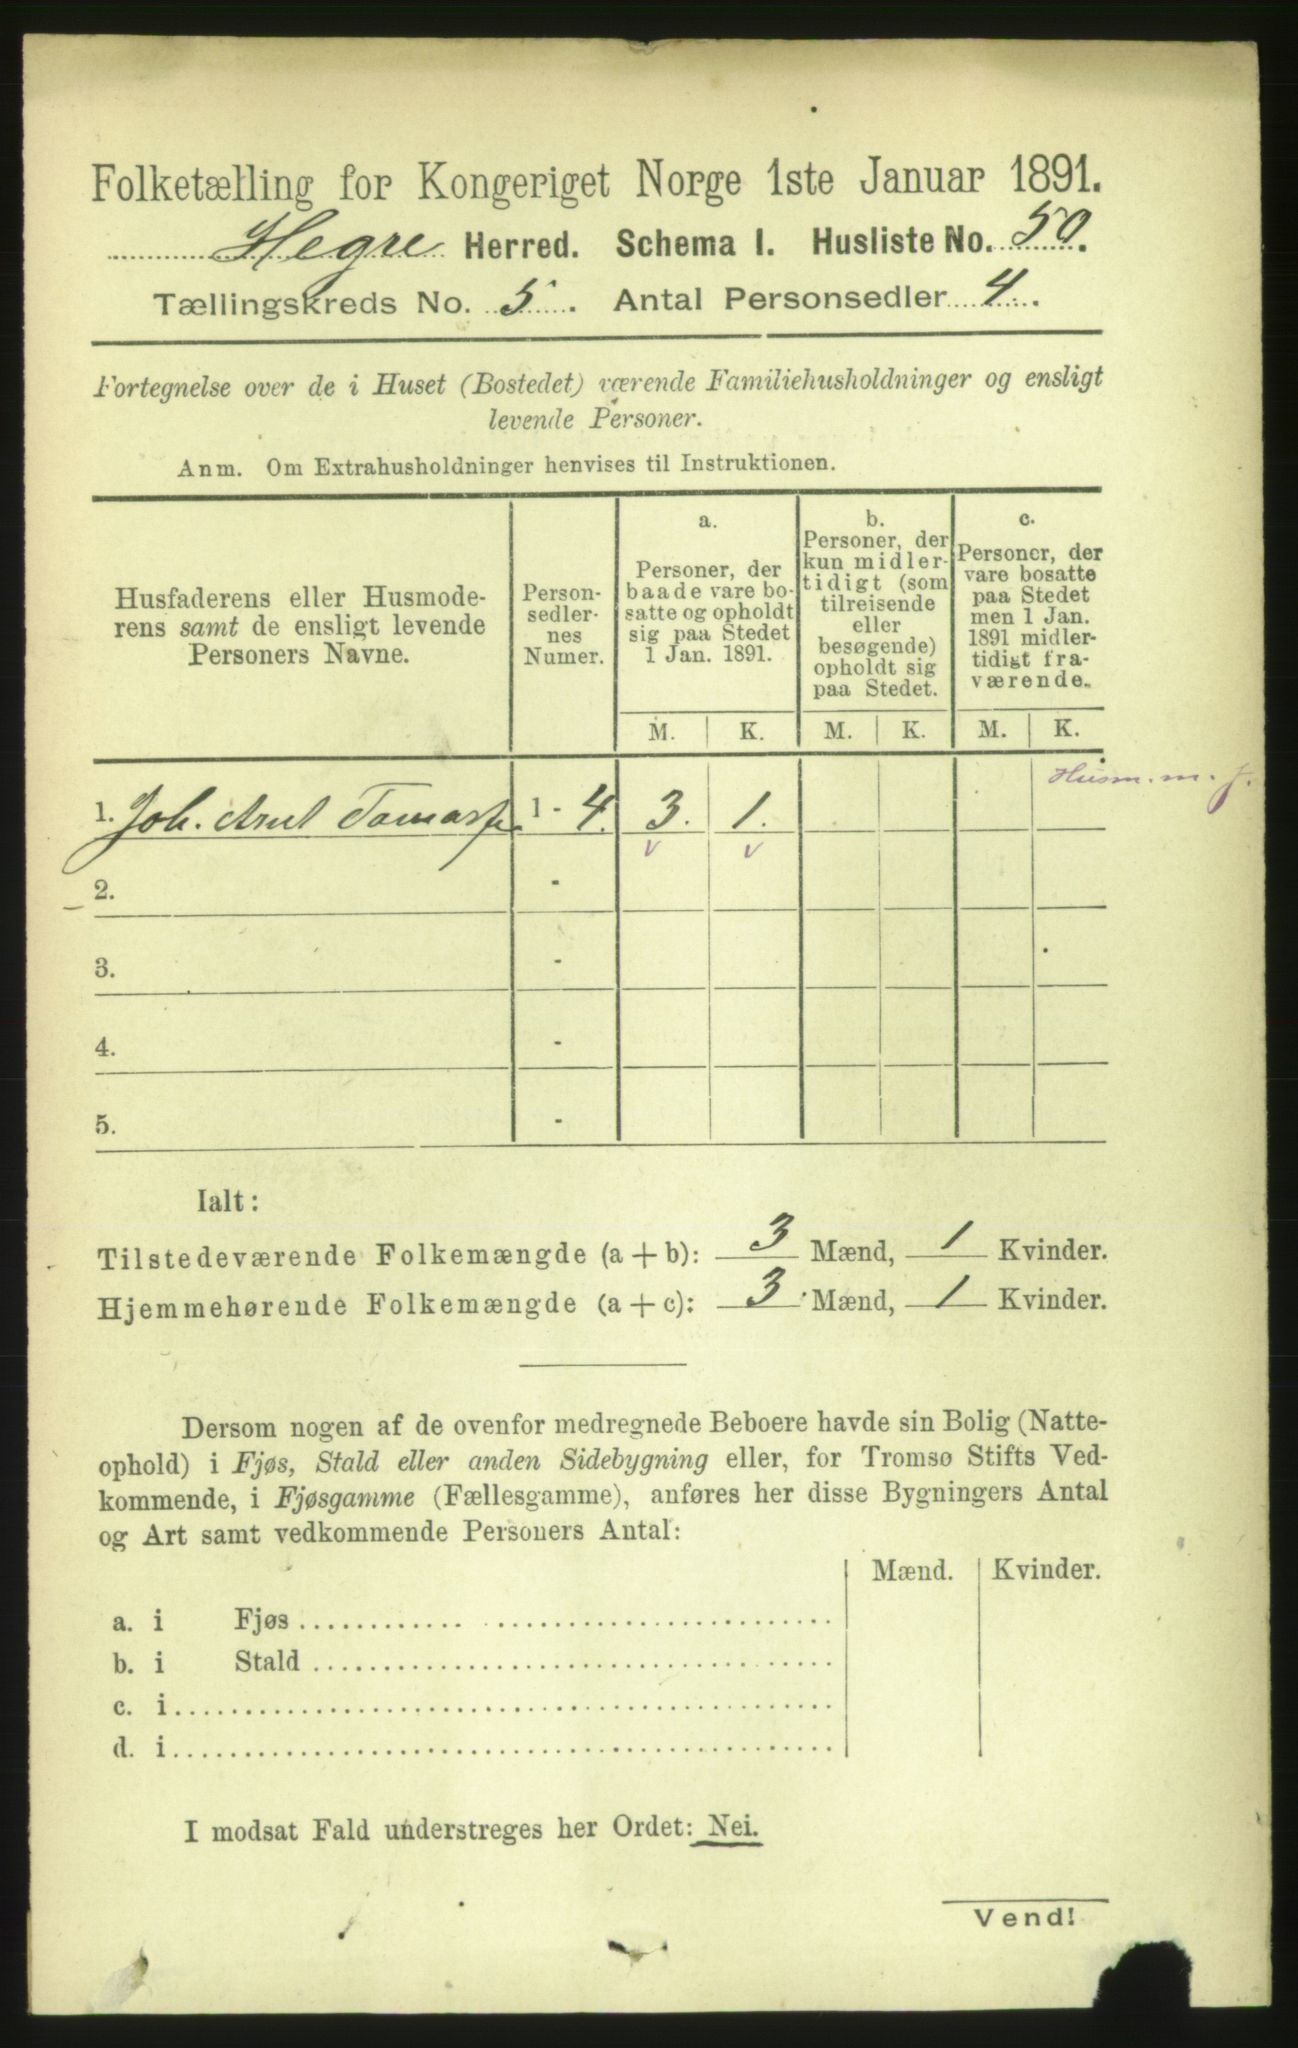 Folketælling for Kongeriget Norge 1ste Januar 1891.
Hegre Herred. Schema I. Husliste No. 50.
Tællingskreds No. 5. Antal Personsedler 4.
Fortegnelse over de i Huset (Bostedet) værende Familiehusholdninger og ensligt
levende Personer.
Anm. Om Extrahusholdninger henvises til Instruktionen.
Husfaderens eller Husmode-
rens samt de ensligt levende
Personers Navne.
Person-
sedler-
nes
Numer.
a.
Personer, der
baade vare bo-
satte og opholdt
sig paa Stedet
1 Jan. 1891.
b.
Personer, der
kun midler-
tidigt (som
tilreisende
eller
besøgende)
opholdt sig
paa Stedet.
c.
Personer, der
vare bosatte
paa Stedet
men 1 Jan.
1891 midler-
tidigt fra-
værende.
M. K. M. K. M. K.
Husm. m. j.
1. Joh. Arnt 1 - 4. 3. 1.
v v
2. -
3. -
4. -
5. -
Ialt:
Tilstedeværende Folkemængde (a + b): 3 Mænd, 1 Kvinder.
Hjemmehørende Folkemængde (a + c): 3 Mænd, 1 Kvinder.
Dersom nogen af de ovenfor medregnede Beboere havde sin Bolig (Natte-
ophold) i Fjøs, Stald eller anden Sidebygning eller, for Tromsø Stifts Ved-
kommende, i Fjøsgamme (Fællesgamme), anføres her disse Bygningers Antal
og Art samt vedkommende Personers Antal:
Mænd. Kvinder.
a. i Fjøs
b. i Stald
c. i
d. i
I modsat Fald understreges her Ordet: Nei.
Vend!